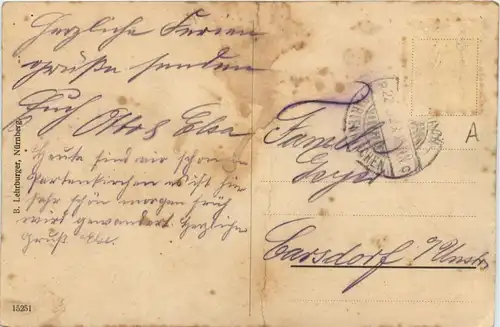 Herzliche Ferien
grüße senden
Euch Otto & Elsa
Heute sind wir schon in
Partenkirchen es ist hier
sehr schön morgen früh
wird gewandert. Herzliche
Gruß Else.
Familie
Geyer
Carsdorf a/Unstr.
B. Lehrburger, Nürnberg
15251
A